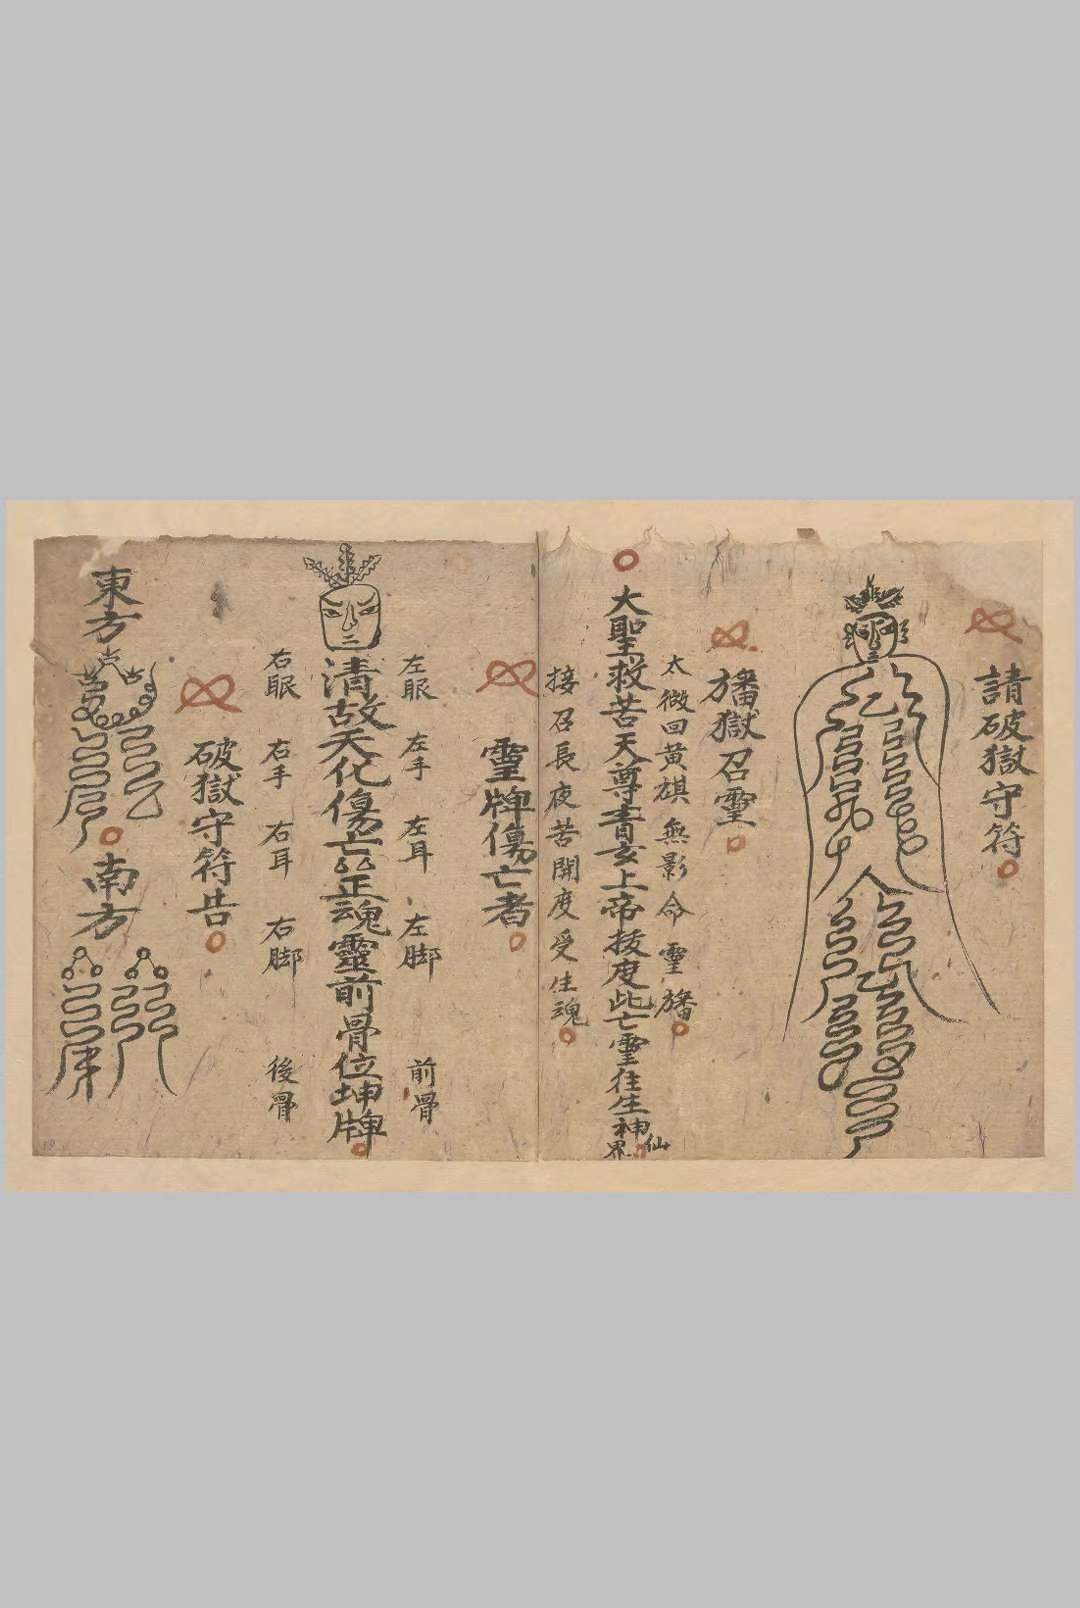 請破獄守符
旛獄召霊
太微回黄旗無影命霊旛
大聖救苦天尊青玄上帝拔度此亡霊往生神仙界
接召長夜苦開度受生魂
霊牌傷亡者
左眼 左手 左耳 左脚 前骨
清故天化傷亡厶厶正魂靈前骨位坤牌
右眼 右手 右耳 右脚 後骨
破獄守符告
東方
南方